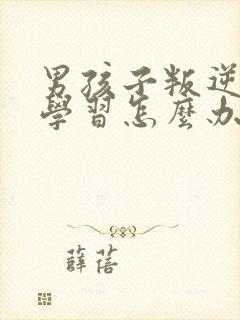 男孩子叛逆
學習怎麼办
薛蓓